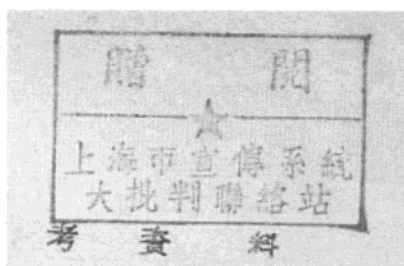 贈 閱
上海市宣傳系統
大批判聯絡站
考資料